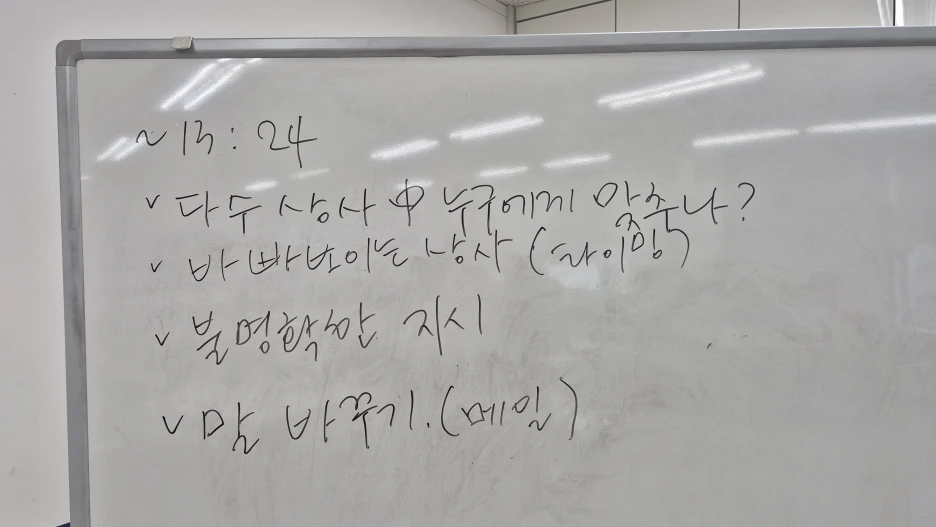 ~ 13 : 24
v 다수 상사 中 누구에게 맞추나?
v 바빠보이는 상사 (타이밍)
v 불명확한 지시
v 말 바꾸기. (메일)